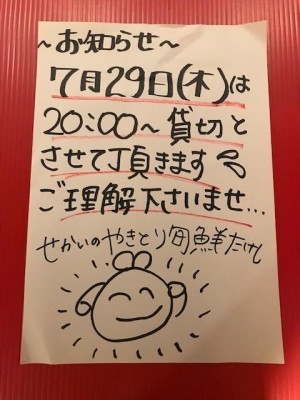 ～お知らせ～
7月29日(木)は
20:00～貸切と
させて頂きます
ご理解下さいませ...
せかいのやきとり旬鮮たけし